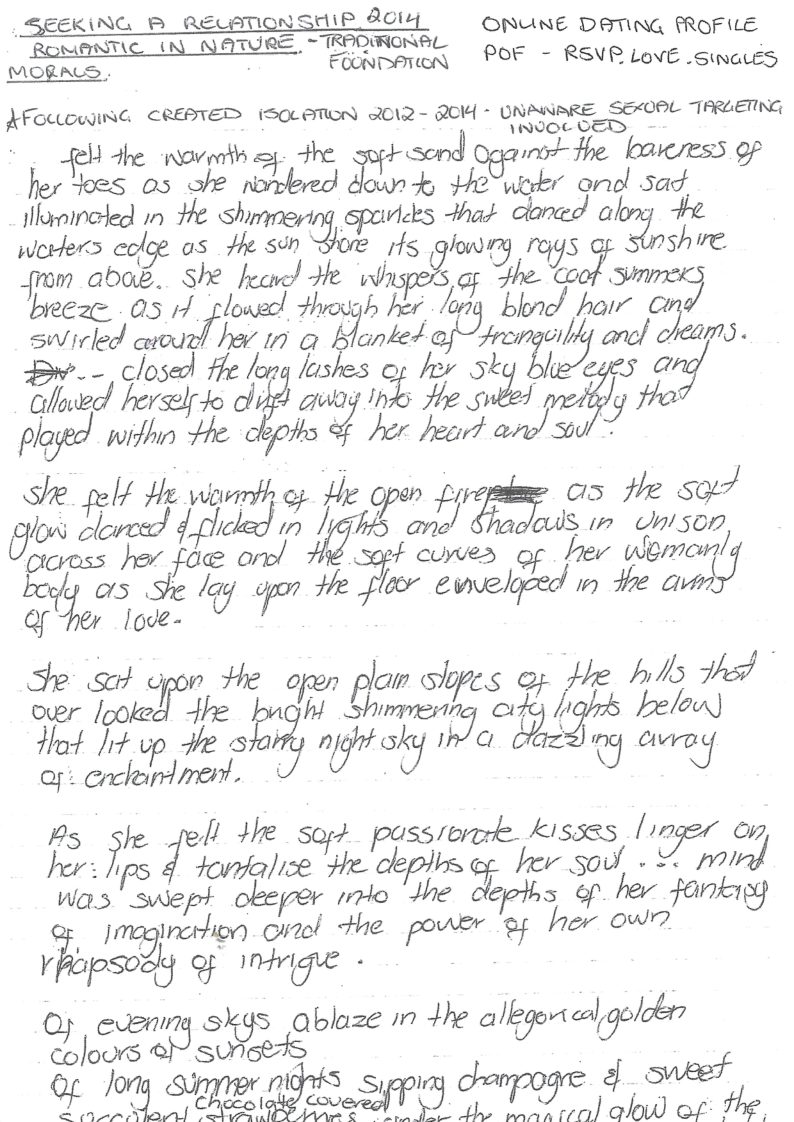 SEEKING A RELATIONSHIP 2014
ROMANTIC IN NATURE. - TRADITIONAL
FOUNDATION
MORALS.
ONLINE DATING PROFILE
POF - RSVP. LOVE. SINGLES
*FOLLOWING CREATED ISOLATION 2012 - 2014 - UNAWARE SEXUAL TARGETING
INVOLVED
felt the warmth of the soft sand against the bareness of
her toes as she wandered down to the water and sat
illuminated in the shimmering sparkles that danced along the
waters edge as the sun shone its glowing rays of sunshine
from above. she heard the whispers of the cool summers
breeze as it flowed through her long blond hair and
swirled around her in a blanket of tranquility and dreams.
closed the long lashes of her sky blue eyes and
allowed herself to drift away into the sweet melody that
played within the depths of her heart and soul.
she felt the warmth of the open fire as the soft
glow danced & flicked in lights and shadows in unison
across her face and the soft curves of her womanly
body as she lay upon the floor enveloped in the arms
of her love.
she sat upon the open plain slopes of the hills that
over looked the bright shimmering city lights below
that lit up the starry night sky in a dazzling array
of enchantment.
As she felt the soft passionate kisses linger on
her lips & tantalise the depths of her soul ... mind
was swept deeper into the depths of her fantasy
of imagination and the power of her own
rhapsody of intrigue.
Of evening skys ablaze in the allegorical golden
colours of sunsets
Of long summer nights sipping champagne & sweet
chocolate covered
succulent strawberries under the magical glow of the